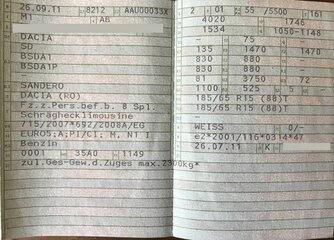 26.09.11 8212 AAU00033X
M1 AB
DACIA
SD
BSDA1
BSDA1P
-
SANDERO
DACIA (RO)
Fz.z.Pers.bef.b. 8 Spl.
Schräghecklimousine
715/2007*692/2008A/EG
EURO5;A;PI/CI; M, N1 I
Benzin
0001 35A0 1149
zul.Ges-Gew.d.Zuges max.2300kg*
2 01 55 /5500 161
4020 1746
1534 1050-1148
- 75 -
135 1470 1470
830 880 -
830 880 -
81 3750 72
1100 525 5 -
185/65 R15 (88)T
185/65 R15 (88)T
-
WEISS 0/-
e2*2001/116*0314*47
26.07.11 K